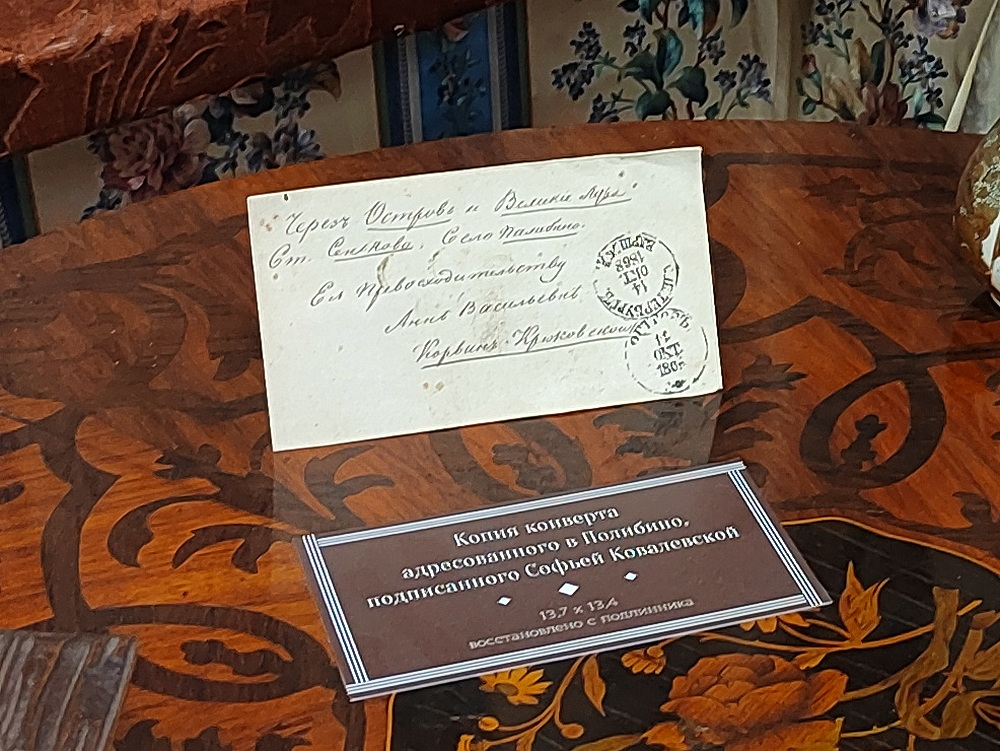 Через Островъ и Великіе Луки
Ст. Сенькова. Село Палибино.
Ея Превосходительству
Аннѣ Васильевнѣ
Корвинъ-Крюковской
1868
ОКТ.
14
С.ПЕТЕРБУРГЪ
ОКТ.
Копия конверта
адресованного в Полибино,
подписанного Софьей Ковалевской
13,7 х 13,4
восстановлено с подлинника